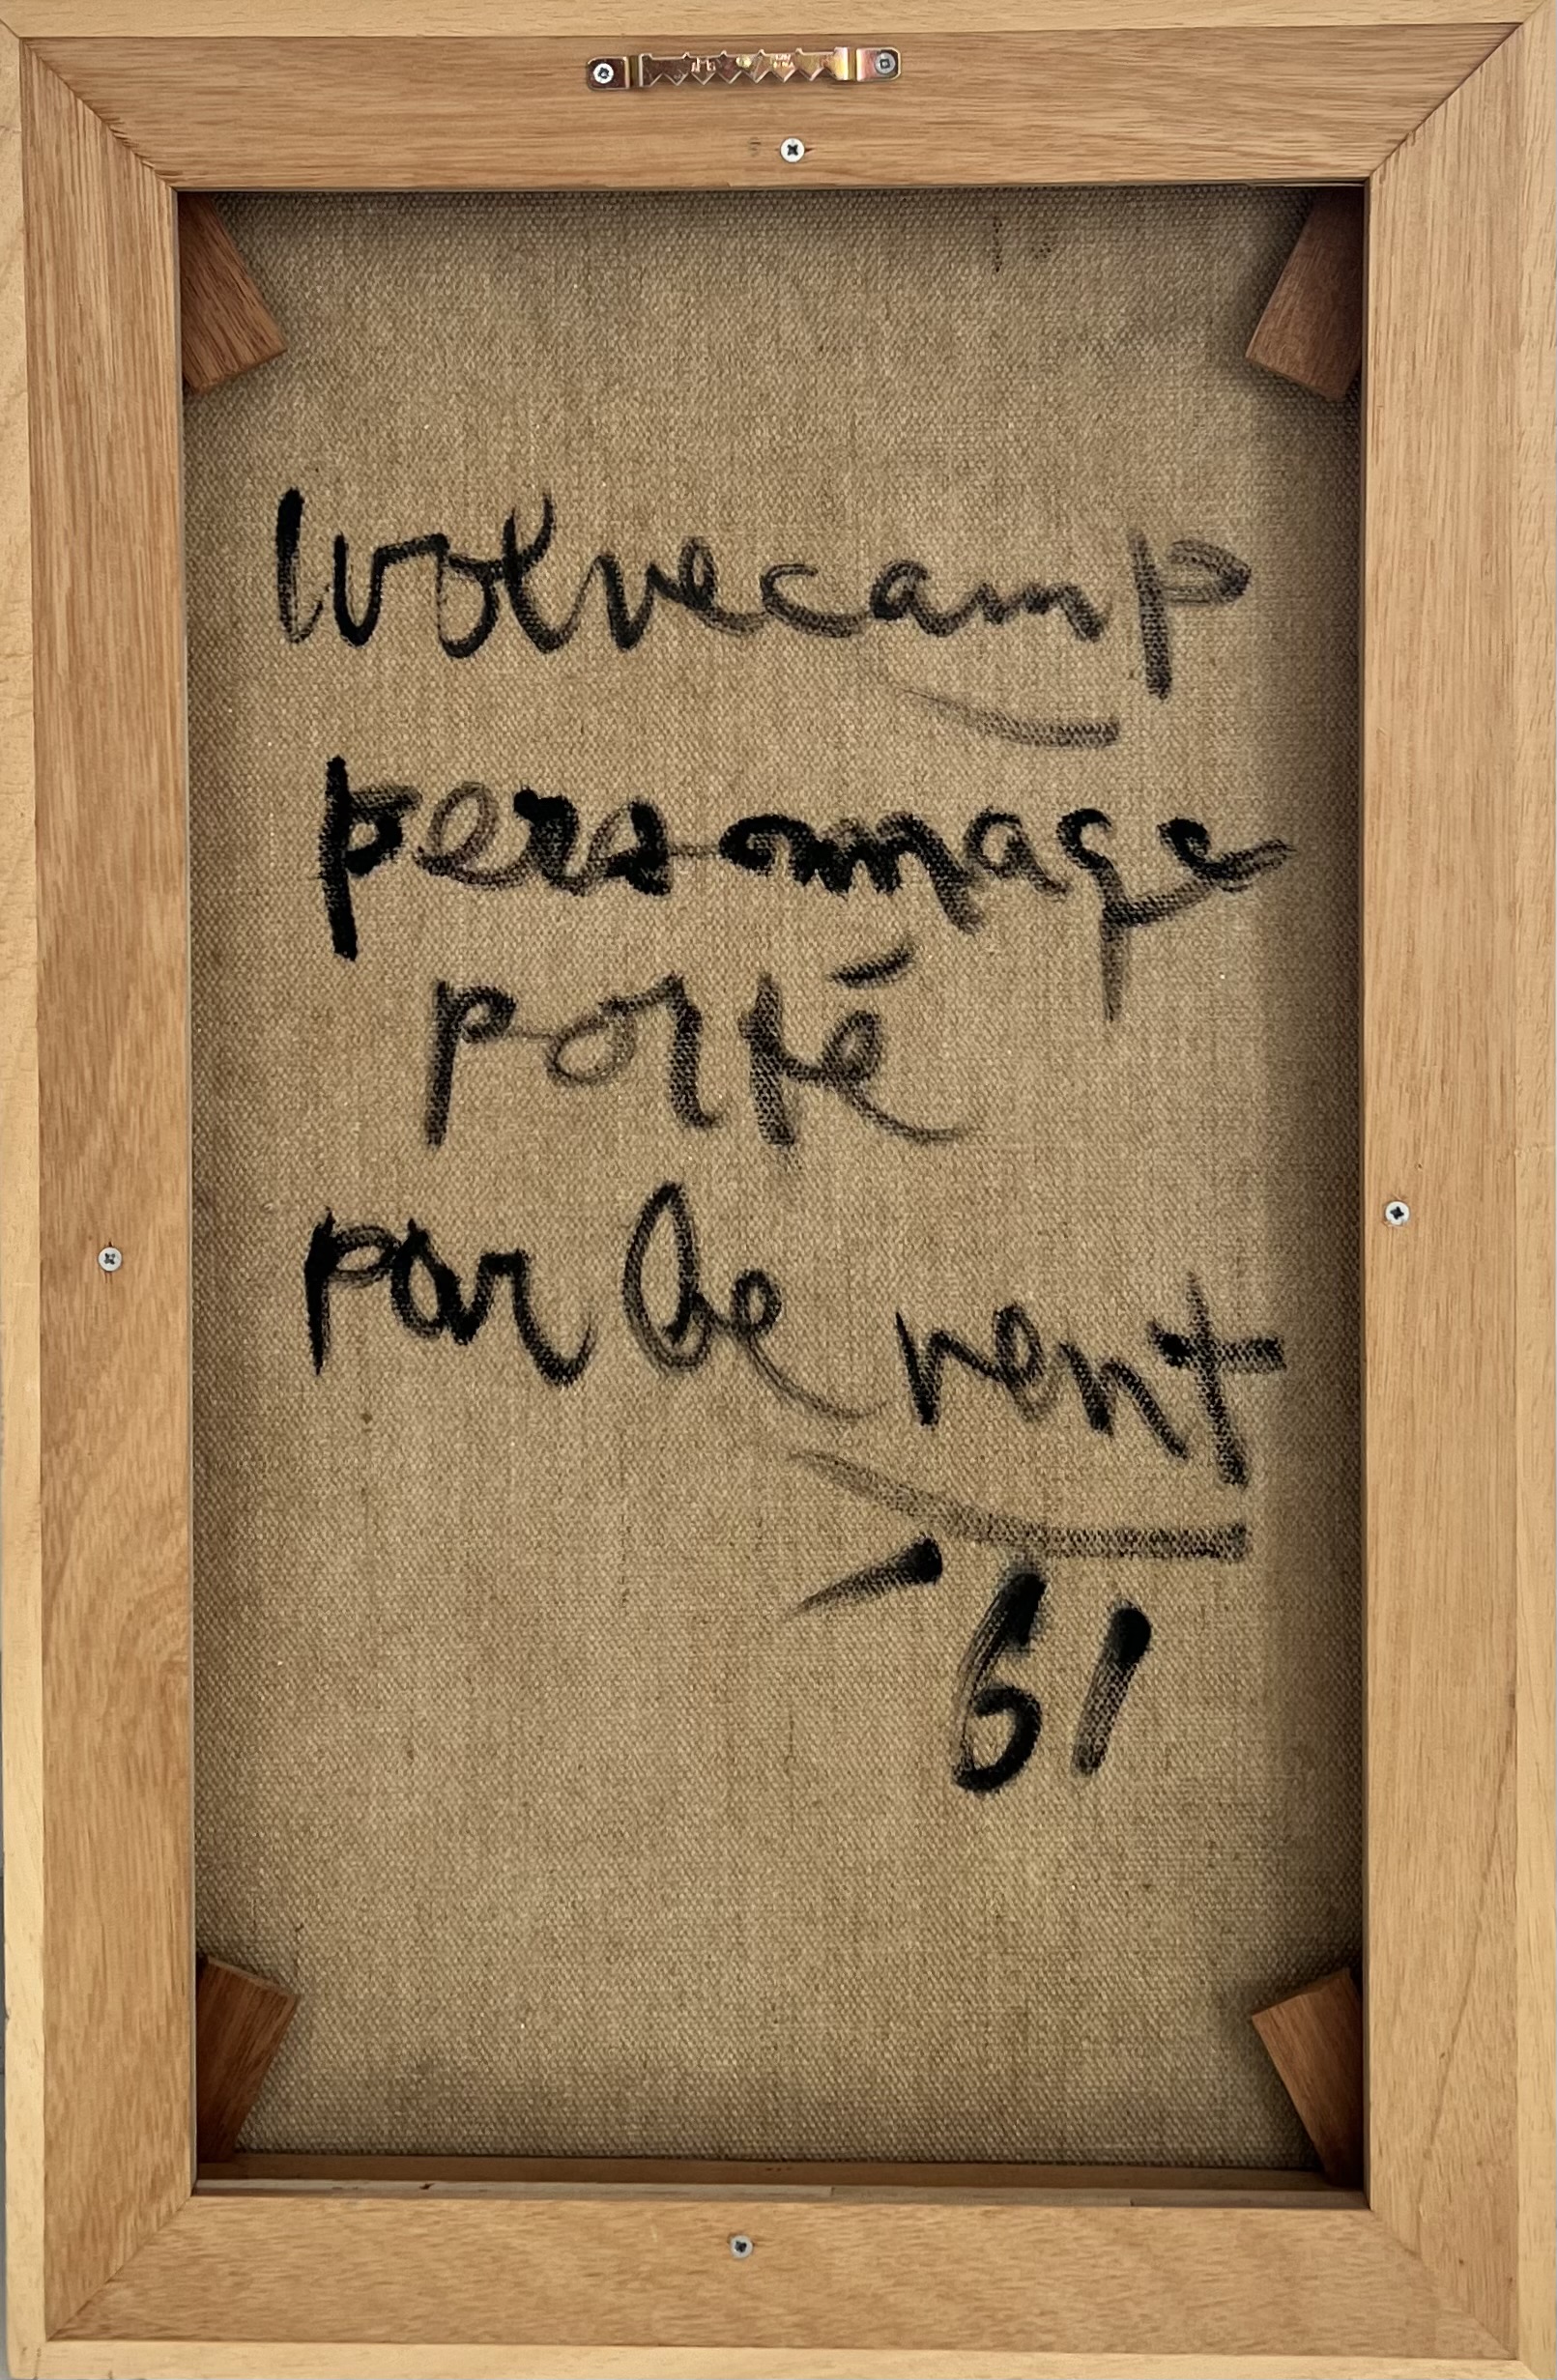 Wolvecamp
personnage
porté
par le vent
'61